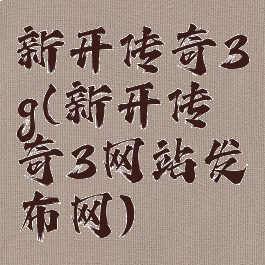 新开传奇3
g(新开传
奇3网站发
布网)